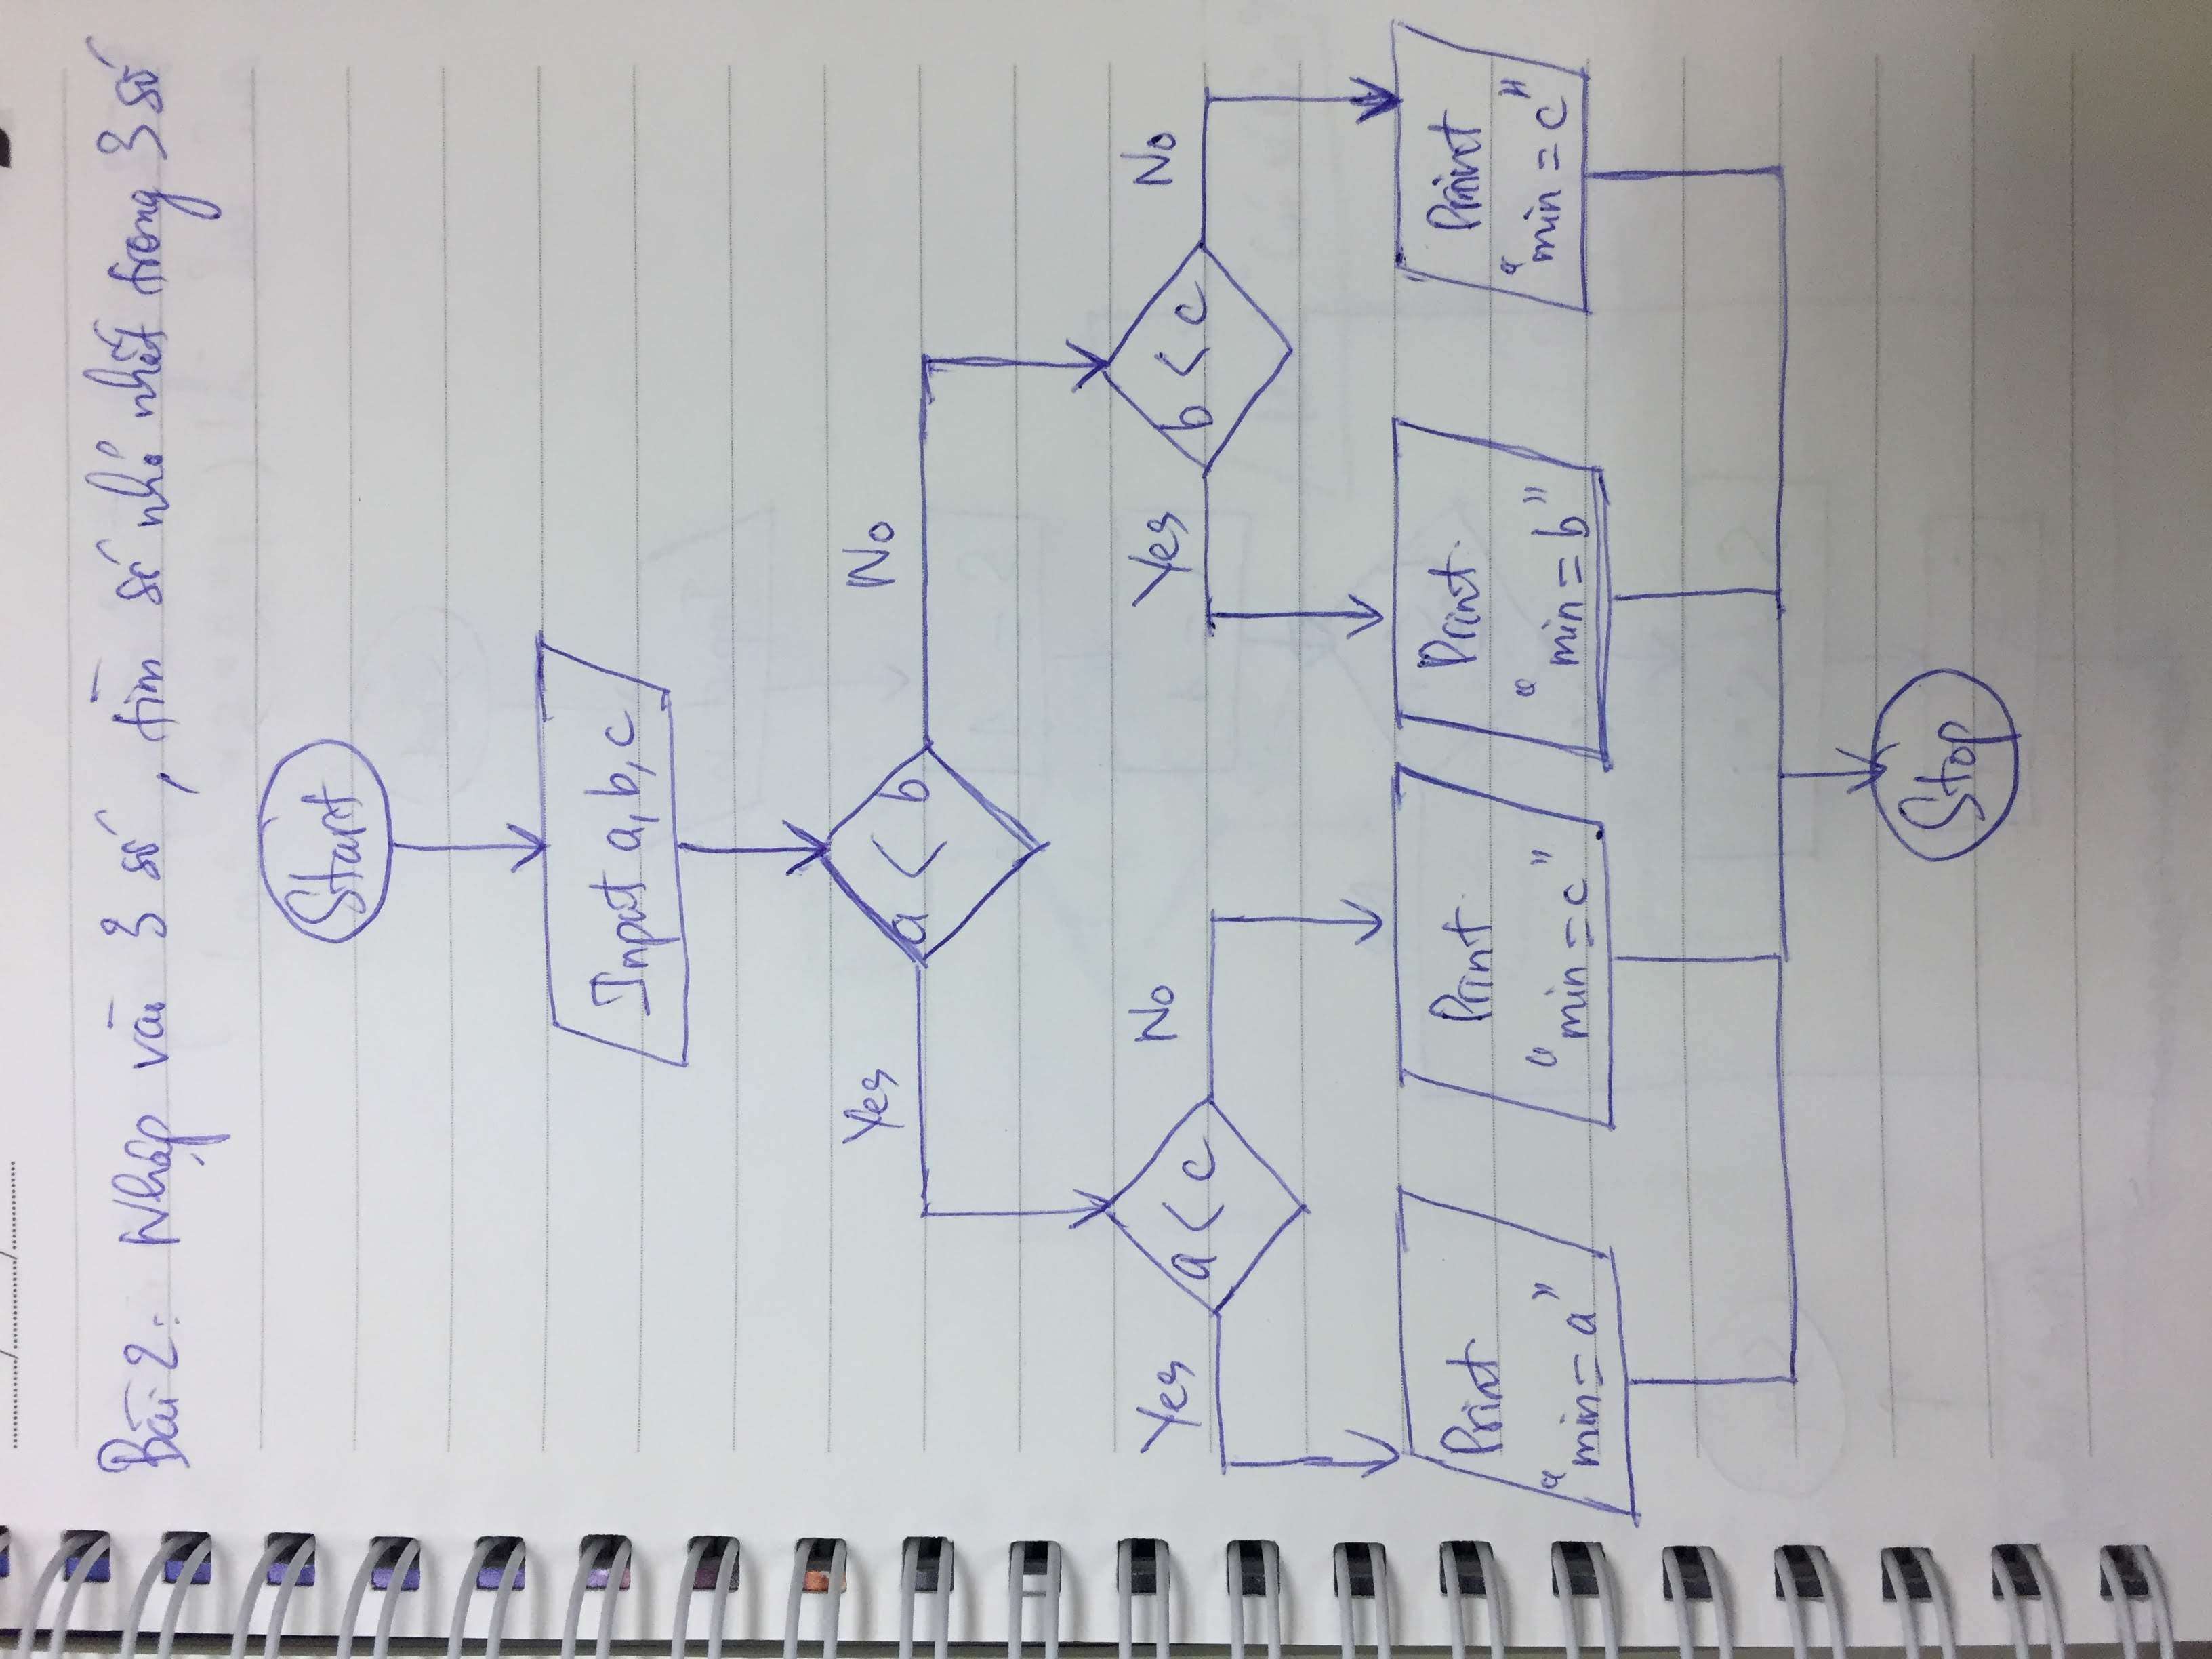 Bài 2: Nhập vào 3 số, tìm số nhỏ nhất trong 3 số
Start
Input a, b, c
Yes
No
a < b
Yes
No
Yes
No
a < c
b < c
Print
"min = a"
Print
"min = c"
Print
"min = b"
Print
"min = c"
Stop